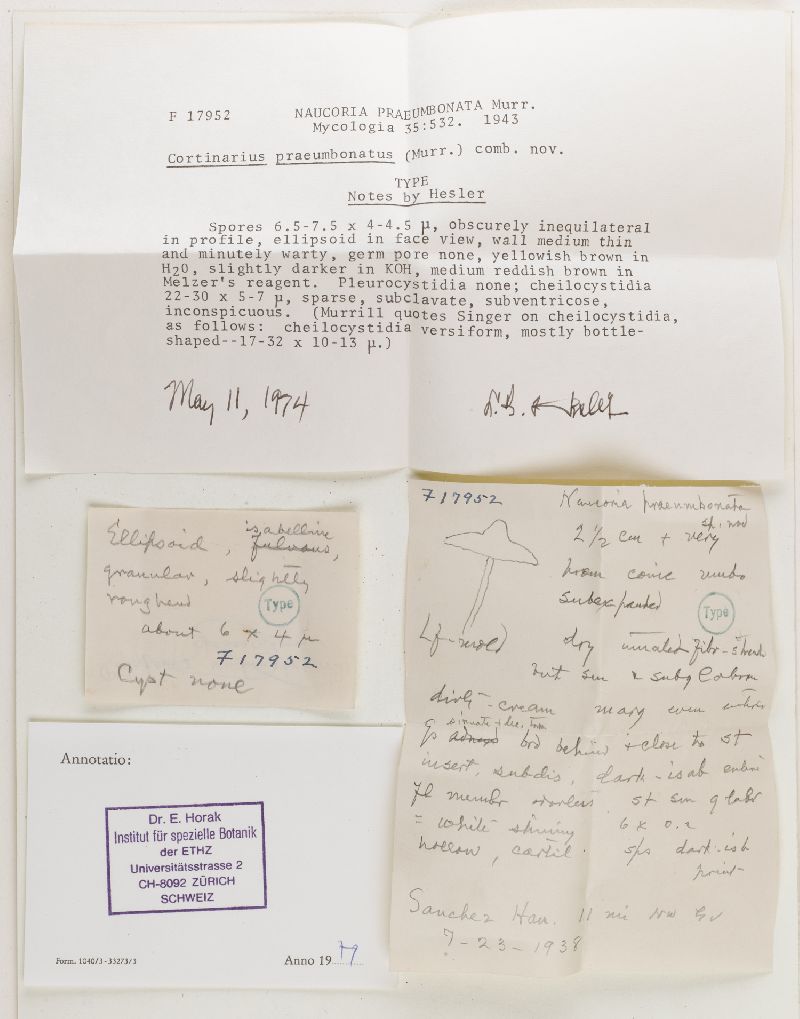 F 17952 NAUCORIA PRAEUMBONATA Murr.
Mycologia 35:532. 1943
Cortinarius praeumbonatus (Murr.) comb. nov.
TYPE
Notes by Hesler
Spores 6.5-7.5 x 4-4.5 µ, obscurely inequilateral
in profile, ellipsoid in face view, wall medium thin
and minutely warty, germ pore none, yellowish brown in
H2O, slightly darker in KOH, medium reddish brown in
Melzer's reagent. Pleurocystidia none; cheilocystidia
22-30 x 5-7 µ, sparse, subclavate, subventricose,
inconspicuous. (Murrill quotes Singer on cheilocystidia,
as follows: cheilocystidia versiform, mostly bottle-
shaped--17-32 x 10-13 µ.)
May 11, 1974
Ellipsoid, isabelline fulvous,
granular, slightly
Type
about 6 x 4 µ
F17952
Cyst none
F17952
Naucoria praeumbonata
sp. nov
2 1/2 cm + very
broad conic umbo
subexpanded
Type
Lf-mold
dry
but sm & subglabrous
dirty-cream marg even
sinuate
brd behind + close to st
insert, subdis, dark-isab entire
Fl membr odorless st sm glabr
= white shining 6 x 0.2
hollow, cartil. sps dark-isb
print
Sanchez Ham. 11 mi NW Gv
7-23-1938
Annotatio:
Dr. E. Horak
Institut für spezielle Botanik
der ETHZ
Universitätsstrasse 2
CH-8092 ZÜRICH
SCHWEIZ
Form. 1040/3-33273/3
Anno 19